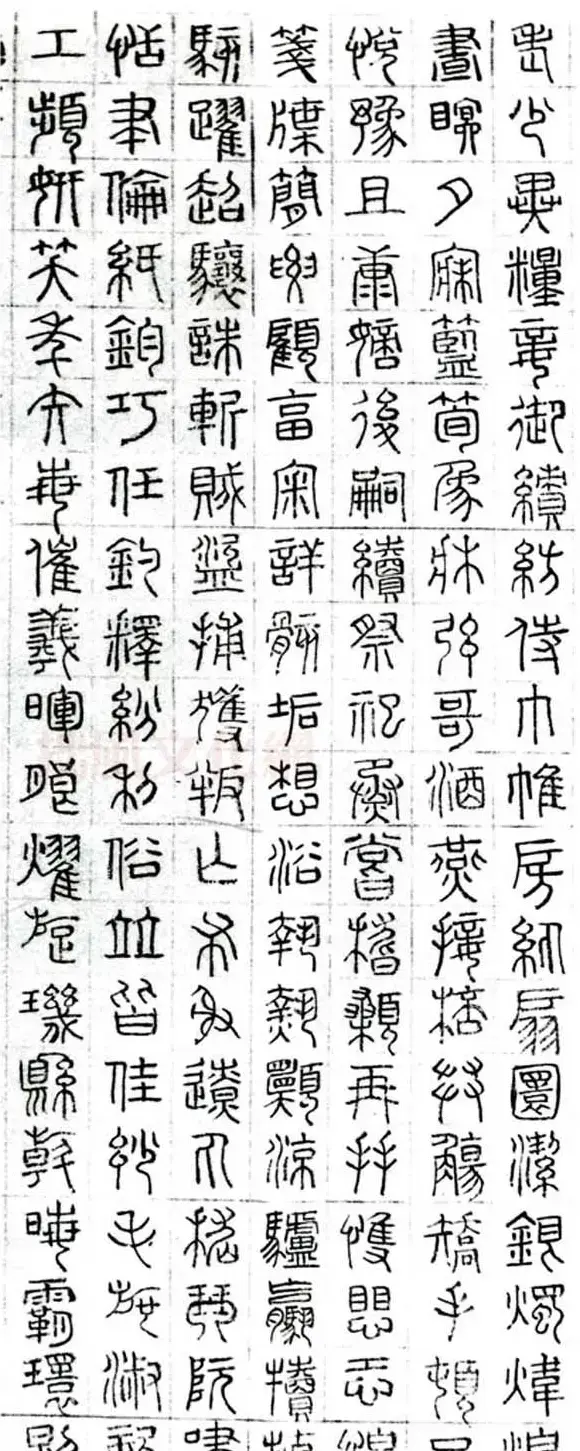 老少異糧妾御績紡侍巾帷房紈扇圓潔銀燭煒
晝瞑夕寐籃筍象牀弦哥酒燕接桮舉觴矯手頓
悅豫且康嫡後嗣續祭祀烝嘗稽顙再拜愯懼恐
箋牒簡要顧畣審詳骸垢想浴執熱願涼驢驘犢
駭躍超驤誅斬賊盜捕獲叛亡布射遼丸嵇琴阮
恬聿倫紙鈞巧任釣釋紛利俗並皆佳妙毛施淑
工顰妍笑年矢每催羲暉朗燿旋璣縣斡晦霸環